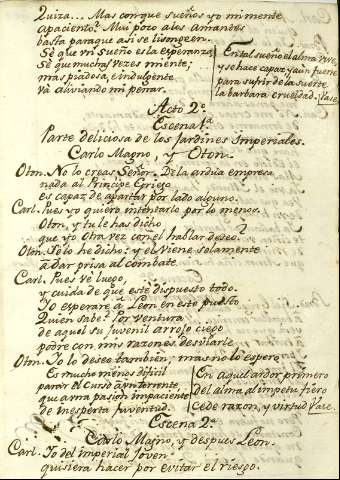 Quiza... Mas conque sueños yo mi mente
apaciento? Mui poco a los amantes
basta paraque asi se lisongeen.
Sè que mi sueño es la esperanza
Sè que muchas vezes miente;
mas piadosa, è indulgente
và aliviando mi penar.
En tal sueño el alma vive,
y se hace capaz, y aun fuerte
para sufrir de la suerte
la barbara crueldad. Vase.
Acto 2º
Escena 1ª
Parte deliciosa de los Jardines Imperiales.
Carlo Magno, y Oton.
Oton. No lo creas Señor. De la ardua empresa
nada al Principe Griego
es capaz de apartar por lado alguno.
Carl. Pues yo quiero intentarlo por lo menos.
Oton, y tu le has dicho
que yo otra vez con el hablar deseo?
Oton. Yo lo he dicho: y el viene solamente
a dar prisa al combate.
Carl. Pues vè luego,
y cuida de que estè dispuesto todo.
Yo esperarè a Leon en este puesto
Quien sabe? Por ventura
de aquel su juvenil arrojo ciego
podre con mis razones desviarle
Oton. Yo lo deseo tambien; mas no lo espero.
Es mucho menos dificil
parar el curso à un torrente,
que a una pasion impaciente
de inesperta juventud.
En aquel ardor primero
del alma, al impetu fiero
cede razon, y virtud Vase.
Escena 2ª
Carlo Magno, y despues Leon.
Carl. Yo del imperial Joven
quisiera hacer por evitar el riesgo.